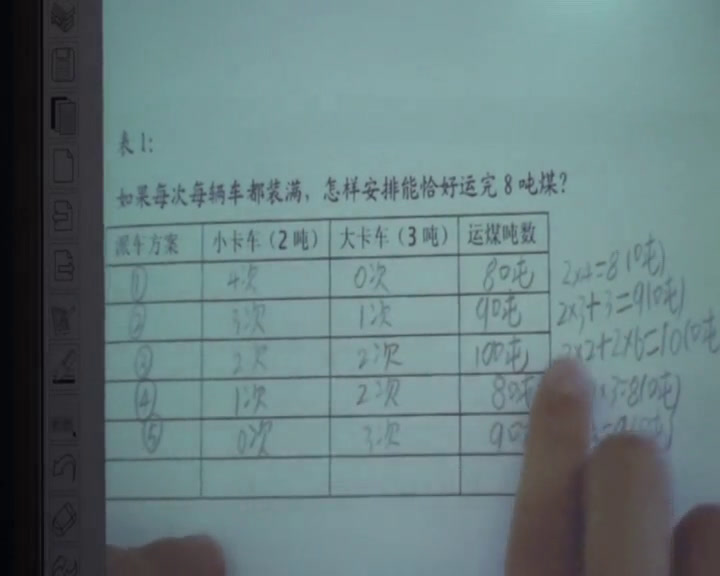 表1:
如果每次每辆车都装满，怎样安排能恰好运完8吨煤？
派车方案 小卡车（2吨） 大卡车（3吨） 运煤吨数
① 4次 0次 8吨 2×4=8(吨)
② 3次 1次 9吨 2×3+3=9(吨)
③ 2次 2次 10吨
④ 1次 2次 8吨 ×3=8(吨)
⑤ 0次 3次